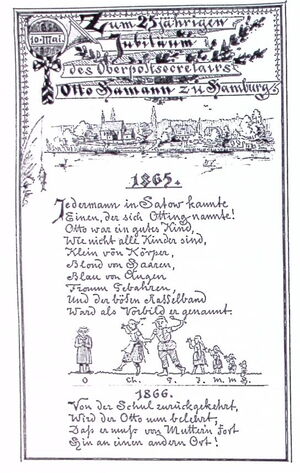 10. Mai.
Zum 25jährigen
Jubiläum
des Oberpostsecretairs
Otto Hamann zu Hamburg.
1865.
Jedermann in Satow kannte
Einen, der sich Otting nannte!
Otto war ein gutes Kind,
Wie nicht alle Kinder sind,
Klein von Körper,
Blond von Haaren,
Blau von Augen
Fromm Gebahren,
Und der bösen Rasselband
Ward als Vorbild er genannt.
O Ch. T. J. M. M. G.
1866.
Von der Schul zurückgekehrt,
Wird der Otto nun belehrt,
Daß er muß von Muttern fort
Hin an einen andern Ort!